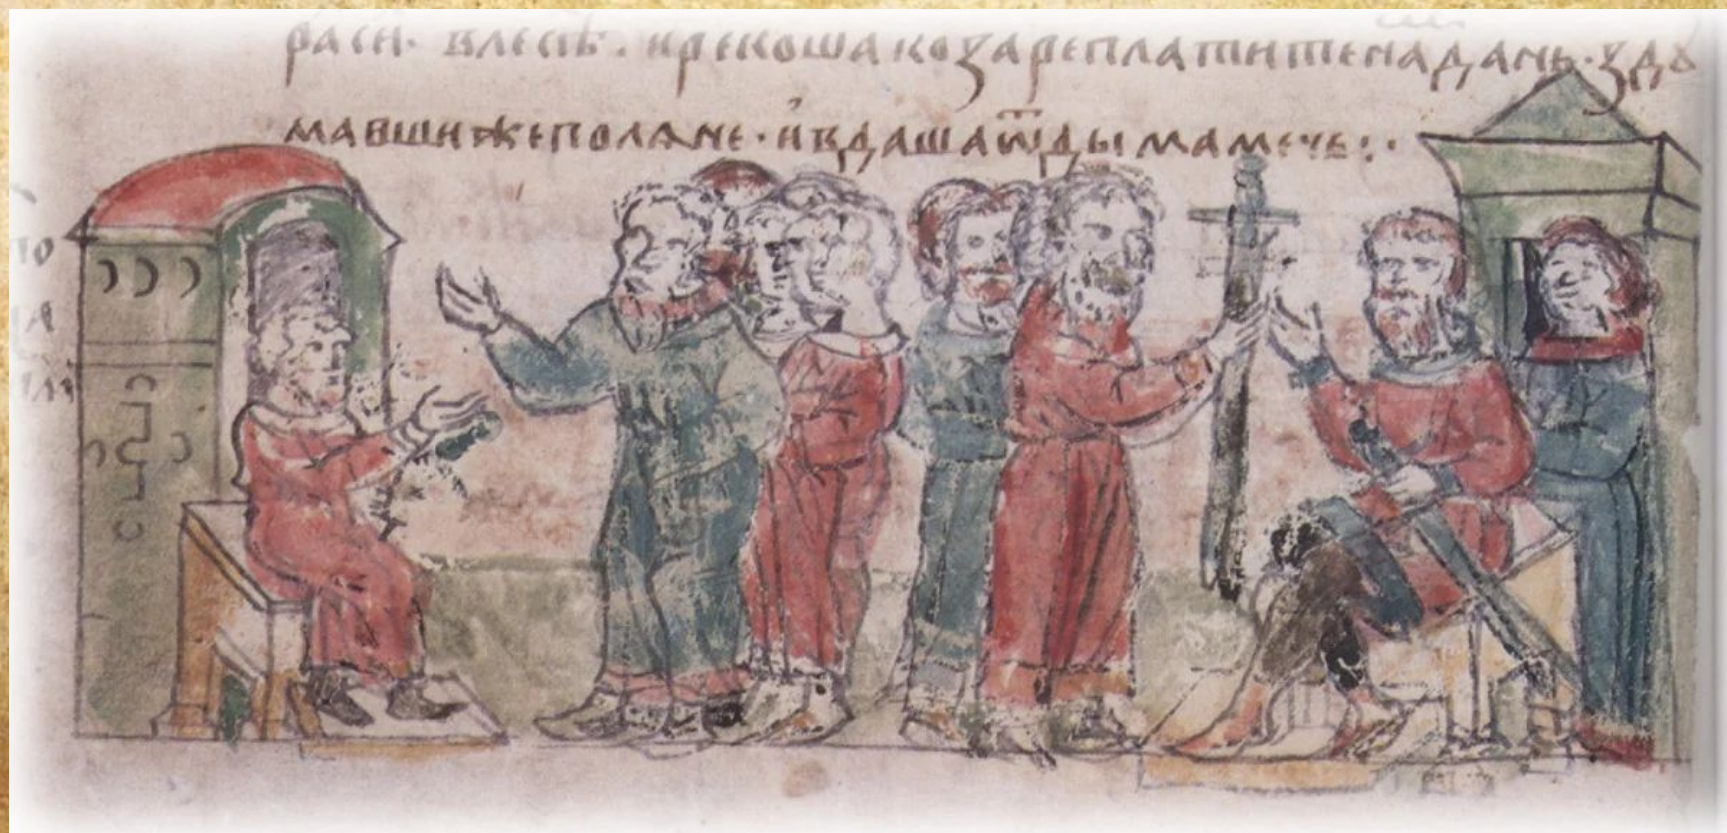 раси· влесѣ· ирекоша коꙁаре платите на дань· ꙁдꙋ
мавши же полѧне· и въдаша ѿ дыма мечь:·